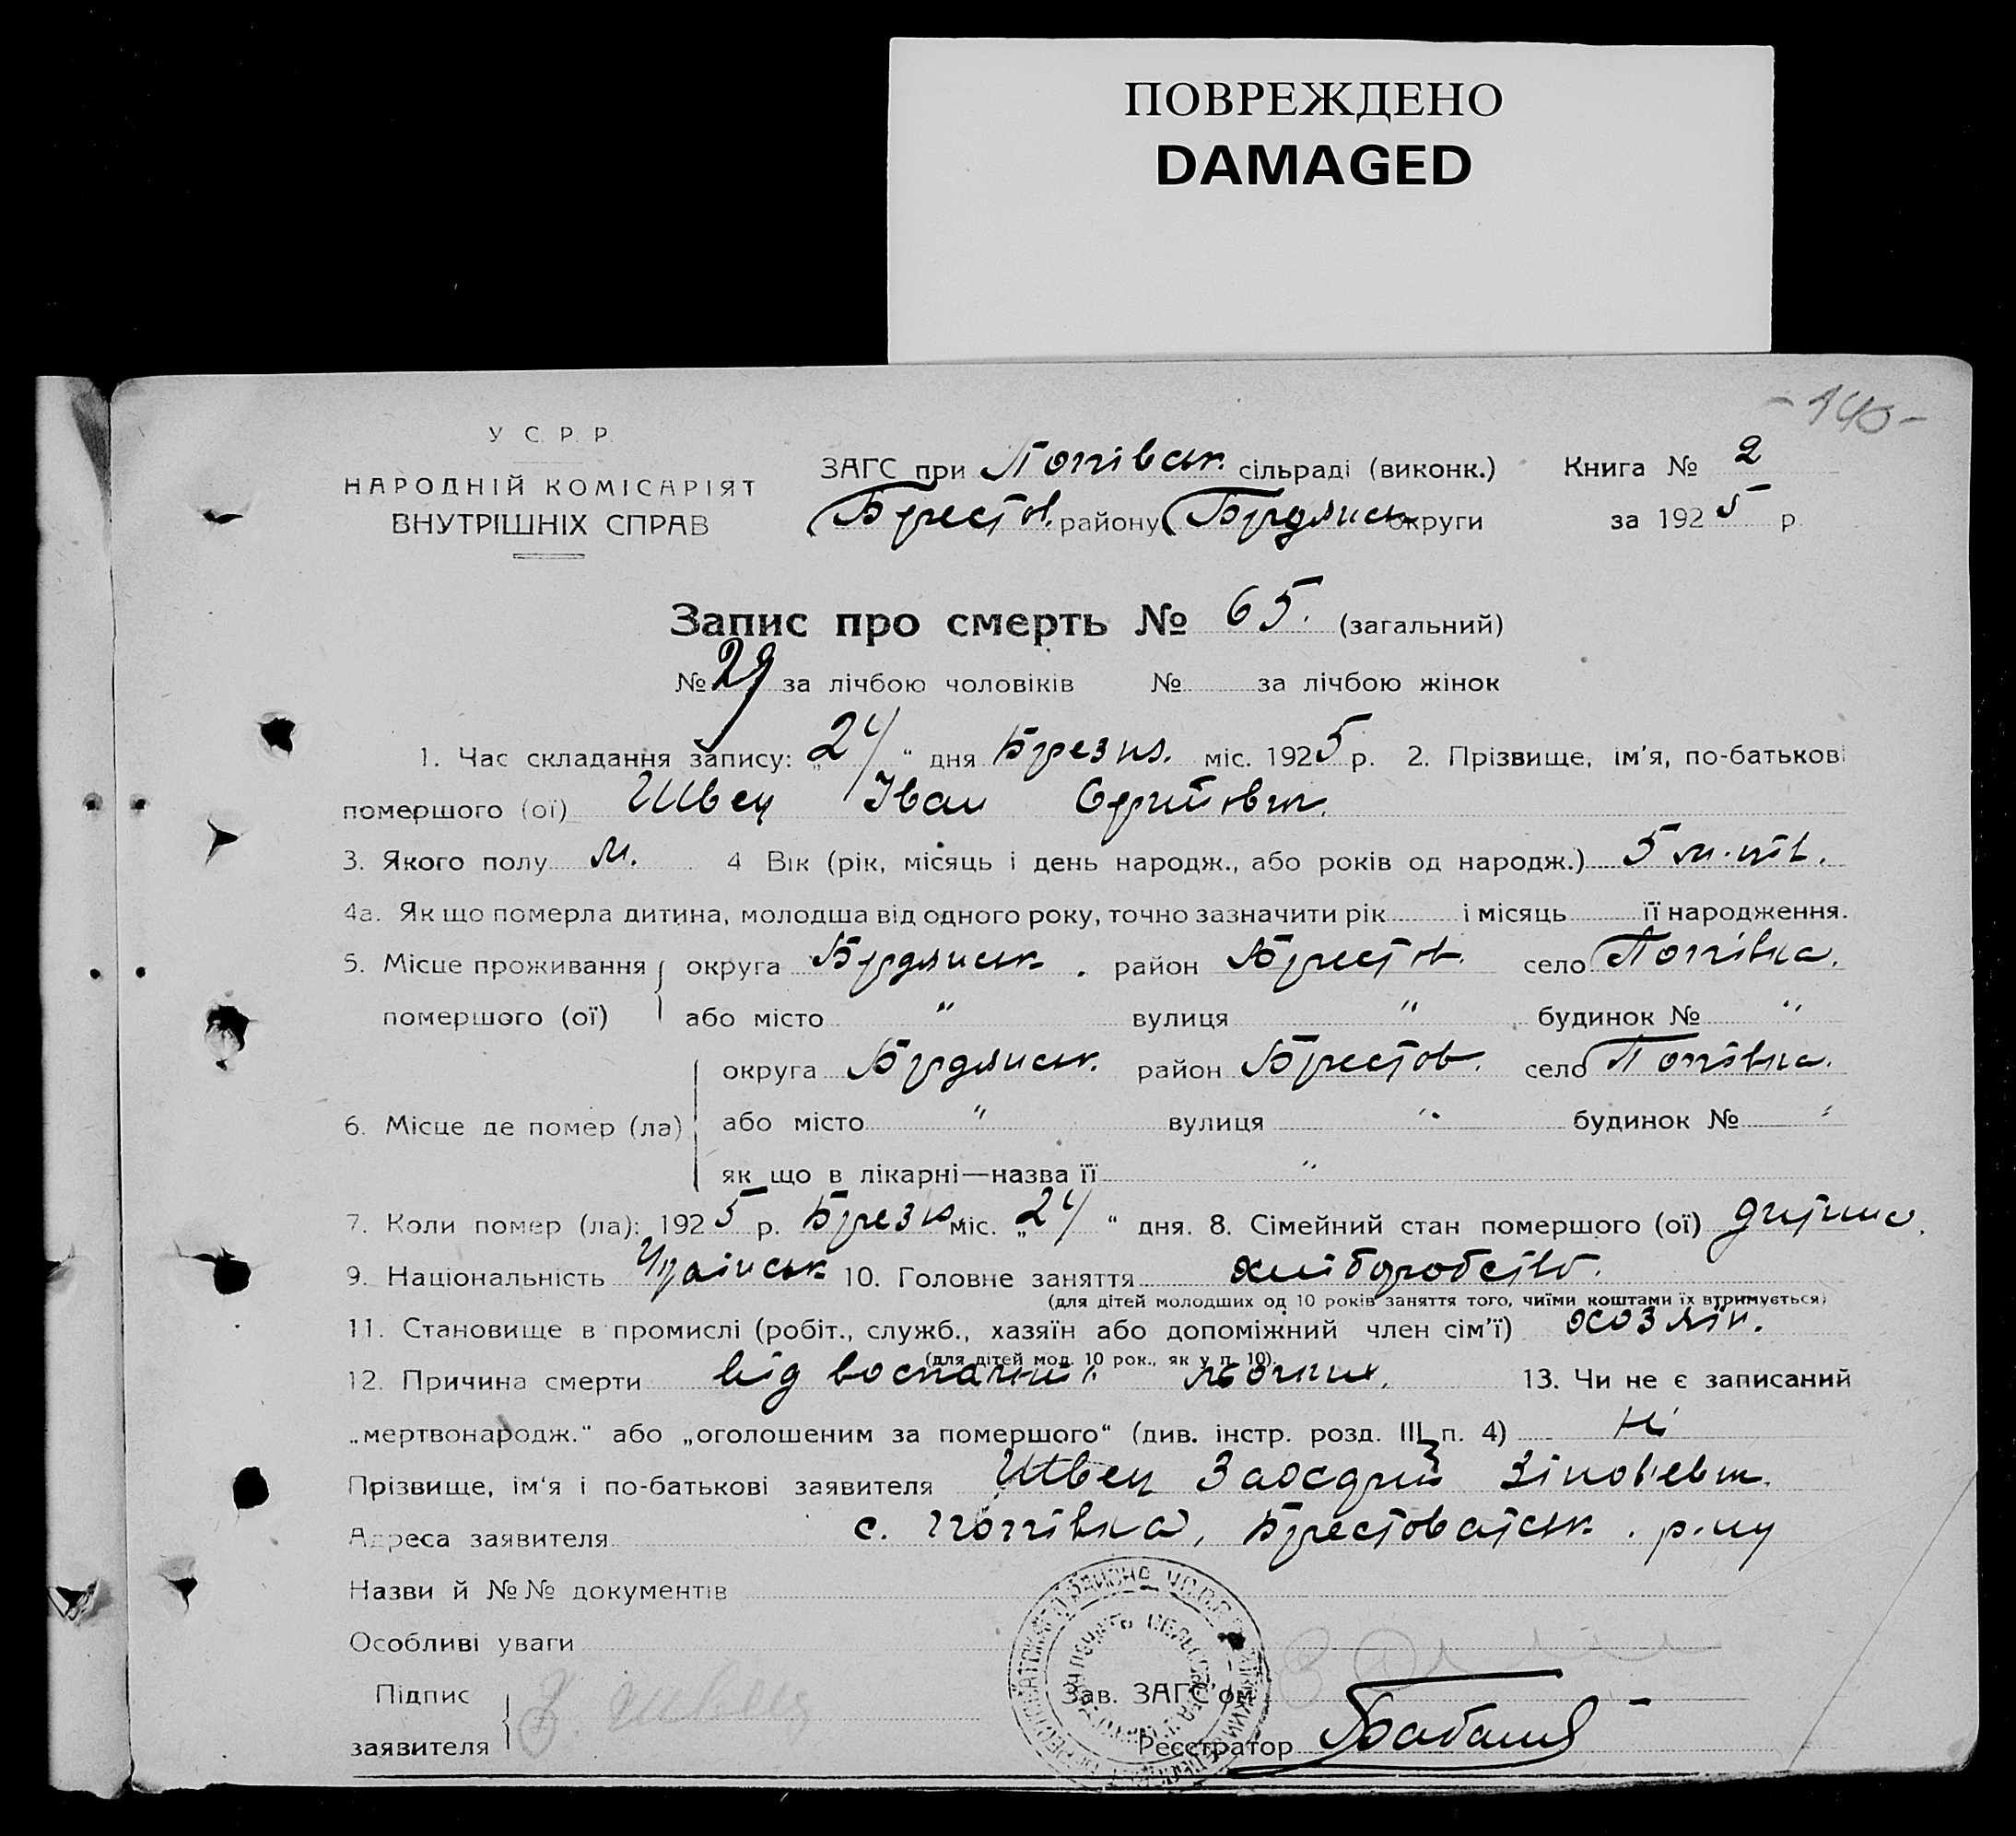 ПОВРЕЖДЕНО
DAMAGED
- 140 -
У С. Р. Р.
НАРОДНІЙ КОМІСАРІЯТ
ВНУТРІШНІХ СПРАВ
ЗАГС при Попівськ. сільраді (виконк.) Книга № 2
Берестов. району Бердянськ округи за 1925 р.
Запис про смерть № 65. (загальний)
№ 29 за лічбою чоловіків № за лічбою жінок
1. Час складання запису: „24“ дня Березня. міс. 1925 р. 2. Прізвище, ім'я, по-батькові
помершого (ої) Швец Іван
3. Якого полу м. 4 Вік (рік, місяць і день народж., або років од народж.) 5
4а. Як що померла дитина, молодша від одного року, точно зазначити рік і місяць її народження.
5. Місце проживання округа Бердянськ. район Берестов. село Попівка.
помершого (ої) або місто " вулиця " будинок № "
округа Бердянськ. район Берестов. село Попівка.
6. Місце де помер (ла) або місто " вулиця " будинок № "
як що в лікарні—назва її "
7. Коли помер (ла): 1925 р. Березня міс. „24“ дня. 8. Сімейний стан помершого (ої) дитина.
9. Національність Українськ 10. Головне заняття хліборобство.
(для дітей молодших од 10 років заняття того, чиїми коштами їх втримується)
11. Становище в промислі (робіт., служб., хазяїн або допоміжний член сім'ї) хозяїн.
(для дітей мол. 10 рок., як у п. 10).
12. Причина смерти від 13. Чи не є записаний
„мертвонародж.“ або „оголошеним за помершого“ (див. інстр. розд. III п. 4) ні
Прізвище, ім'я і по-батькові заявителя Швец
Адреса заявителя с. Попівка, Берестоватськ. р-ну
Назви й №№ документів
Особливі уваги
Підпис
заявителя Швец
Зав. ЗАГС'ом
Реєстратор